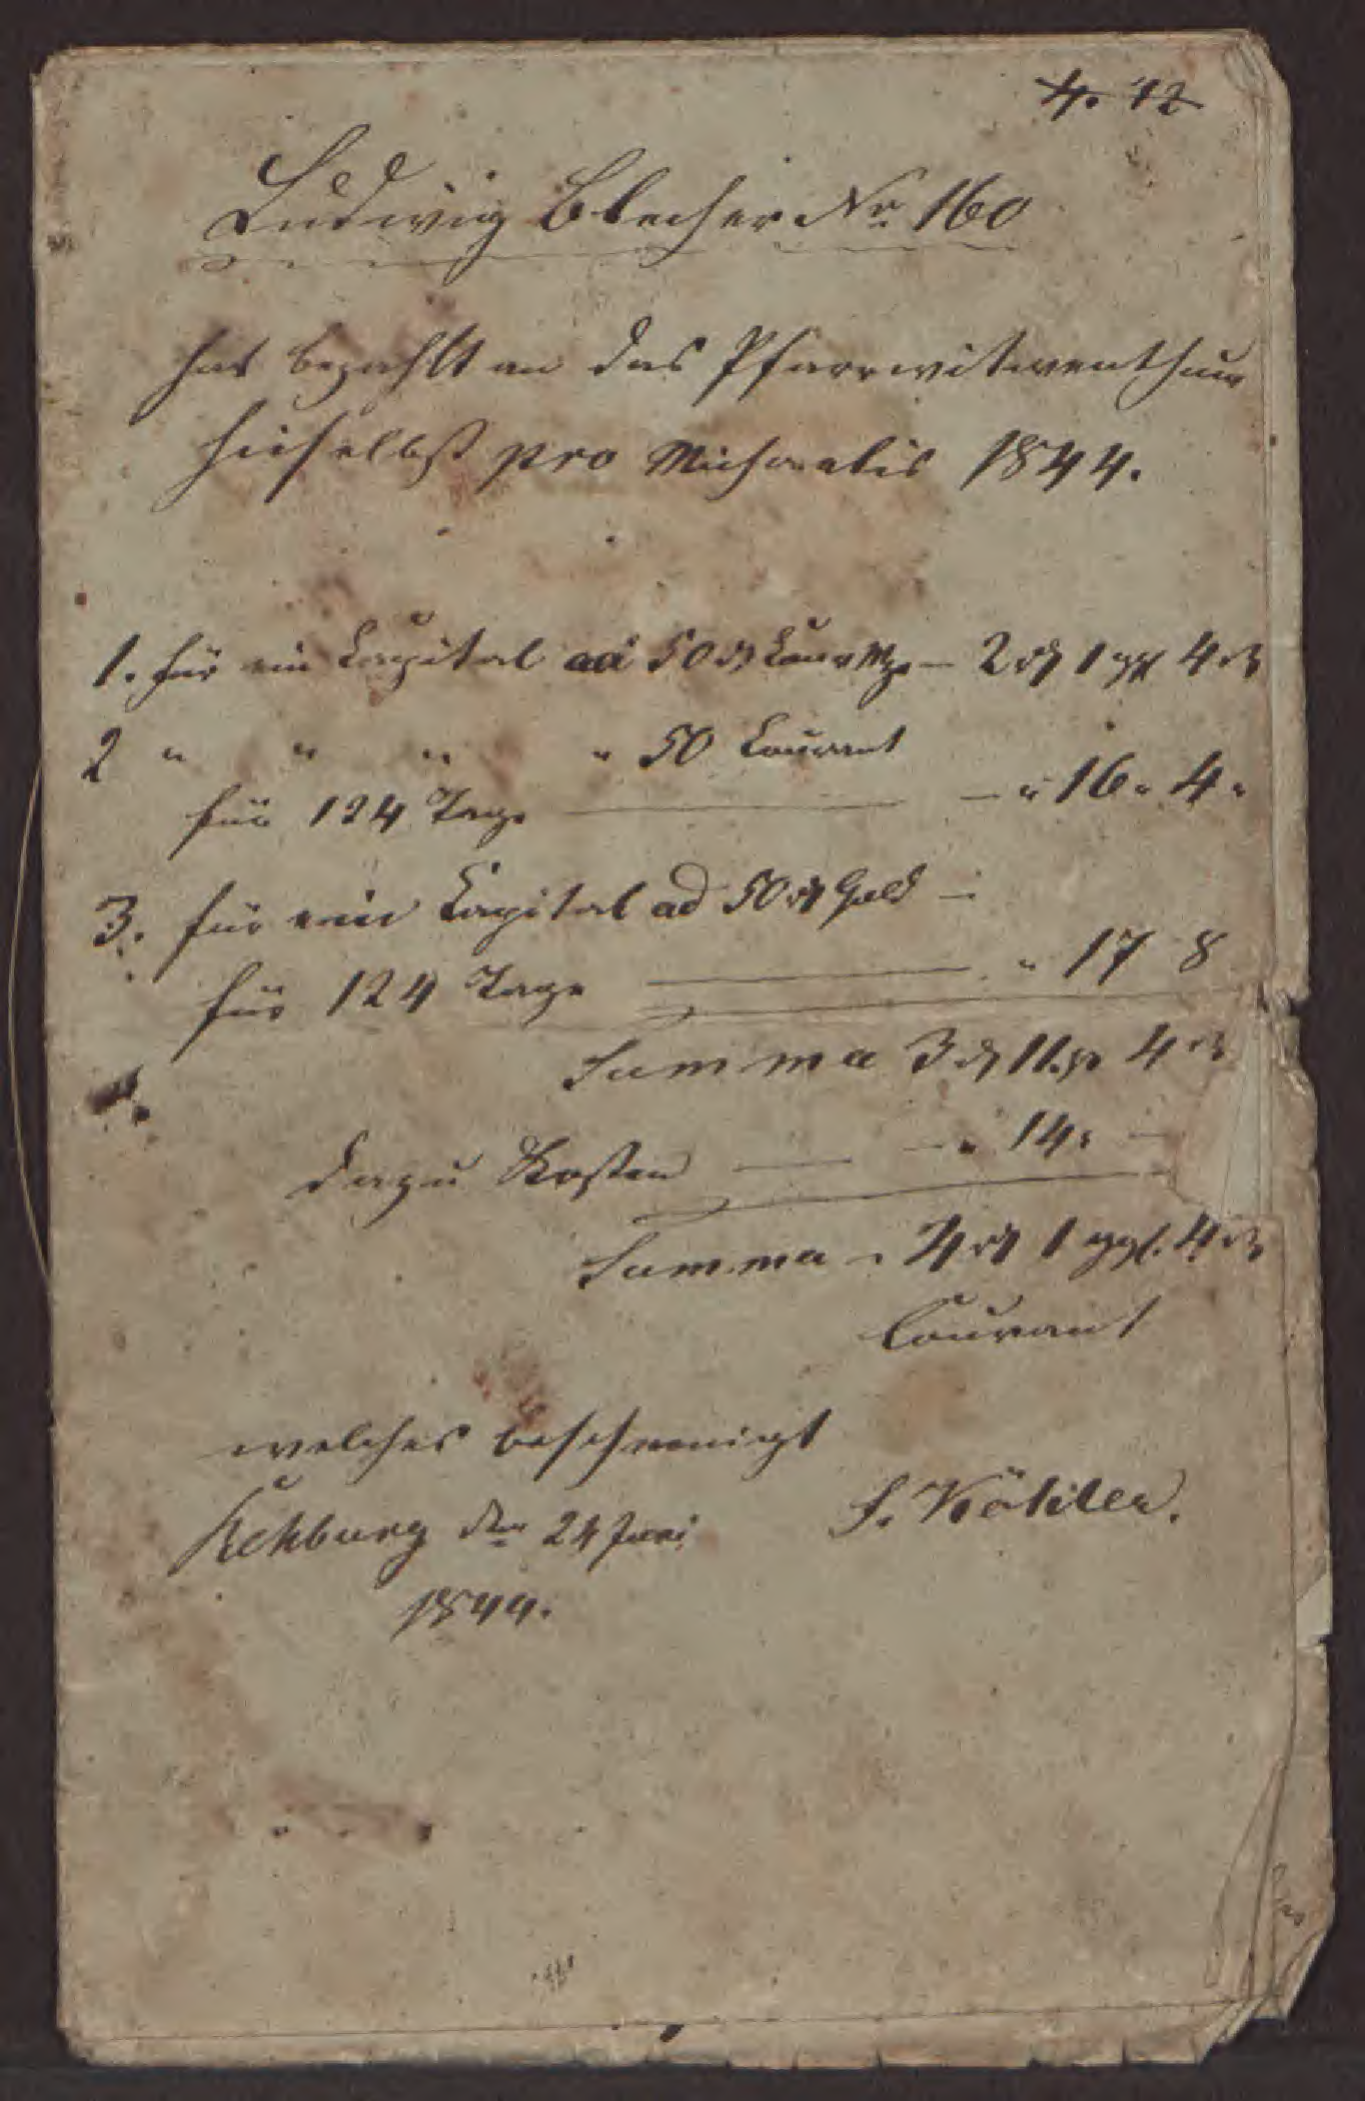 4. 12
Ludwig Blecher Nr. 160
hat bezahlt an das Pfarrwitwenthum
hieselbst pro Michaelis 1844.
1. für ein Capital ad 50 rt — 2 rt 1 ggl 4 d
2 " " " " 50 Courant
für 124 Tage — " 16 " 4 "
3. für ein Capital ad 50 rt Gold —
für 124 Tage — " 17 8
Summa 3 rt 11 gg 4 d
dazu Kosten — " 14 " —
Summa " 4 rt 1 ggl. 4 d
Courant
welches bescheinigt
Rehburg den 24 Juni
1844.
F. Köhler.